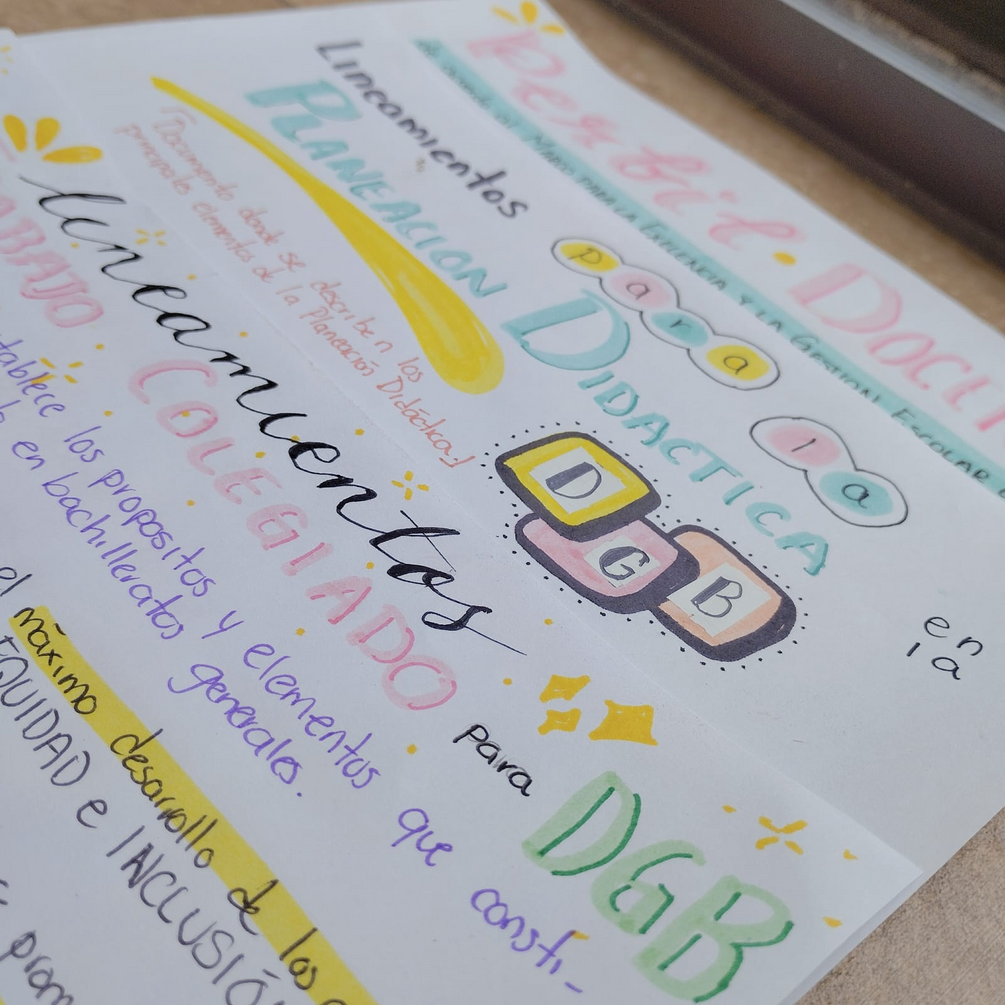 Perfil • DOCEN
MARCO PARA LA EXCELENCIA Y LA GESTION ESCOLAR
Lineamientos para la
PLANEACION DIDACTICA
"Documento donde se describen los
principales elementos de la Planeación Didáctica!
DGB
en
la
lineamientos para
TRABAJO COLEGIADO DGB
tablece los propositos y elementos que consti-
en bachilleratos generales.
el máximo desarrollo de los
EQUIDAD e INCLUSIÓ
prom